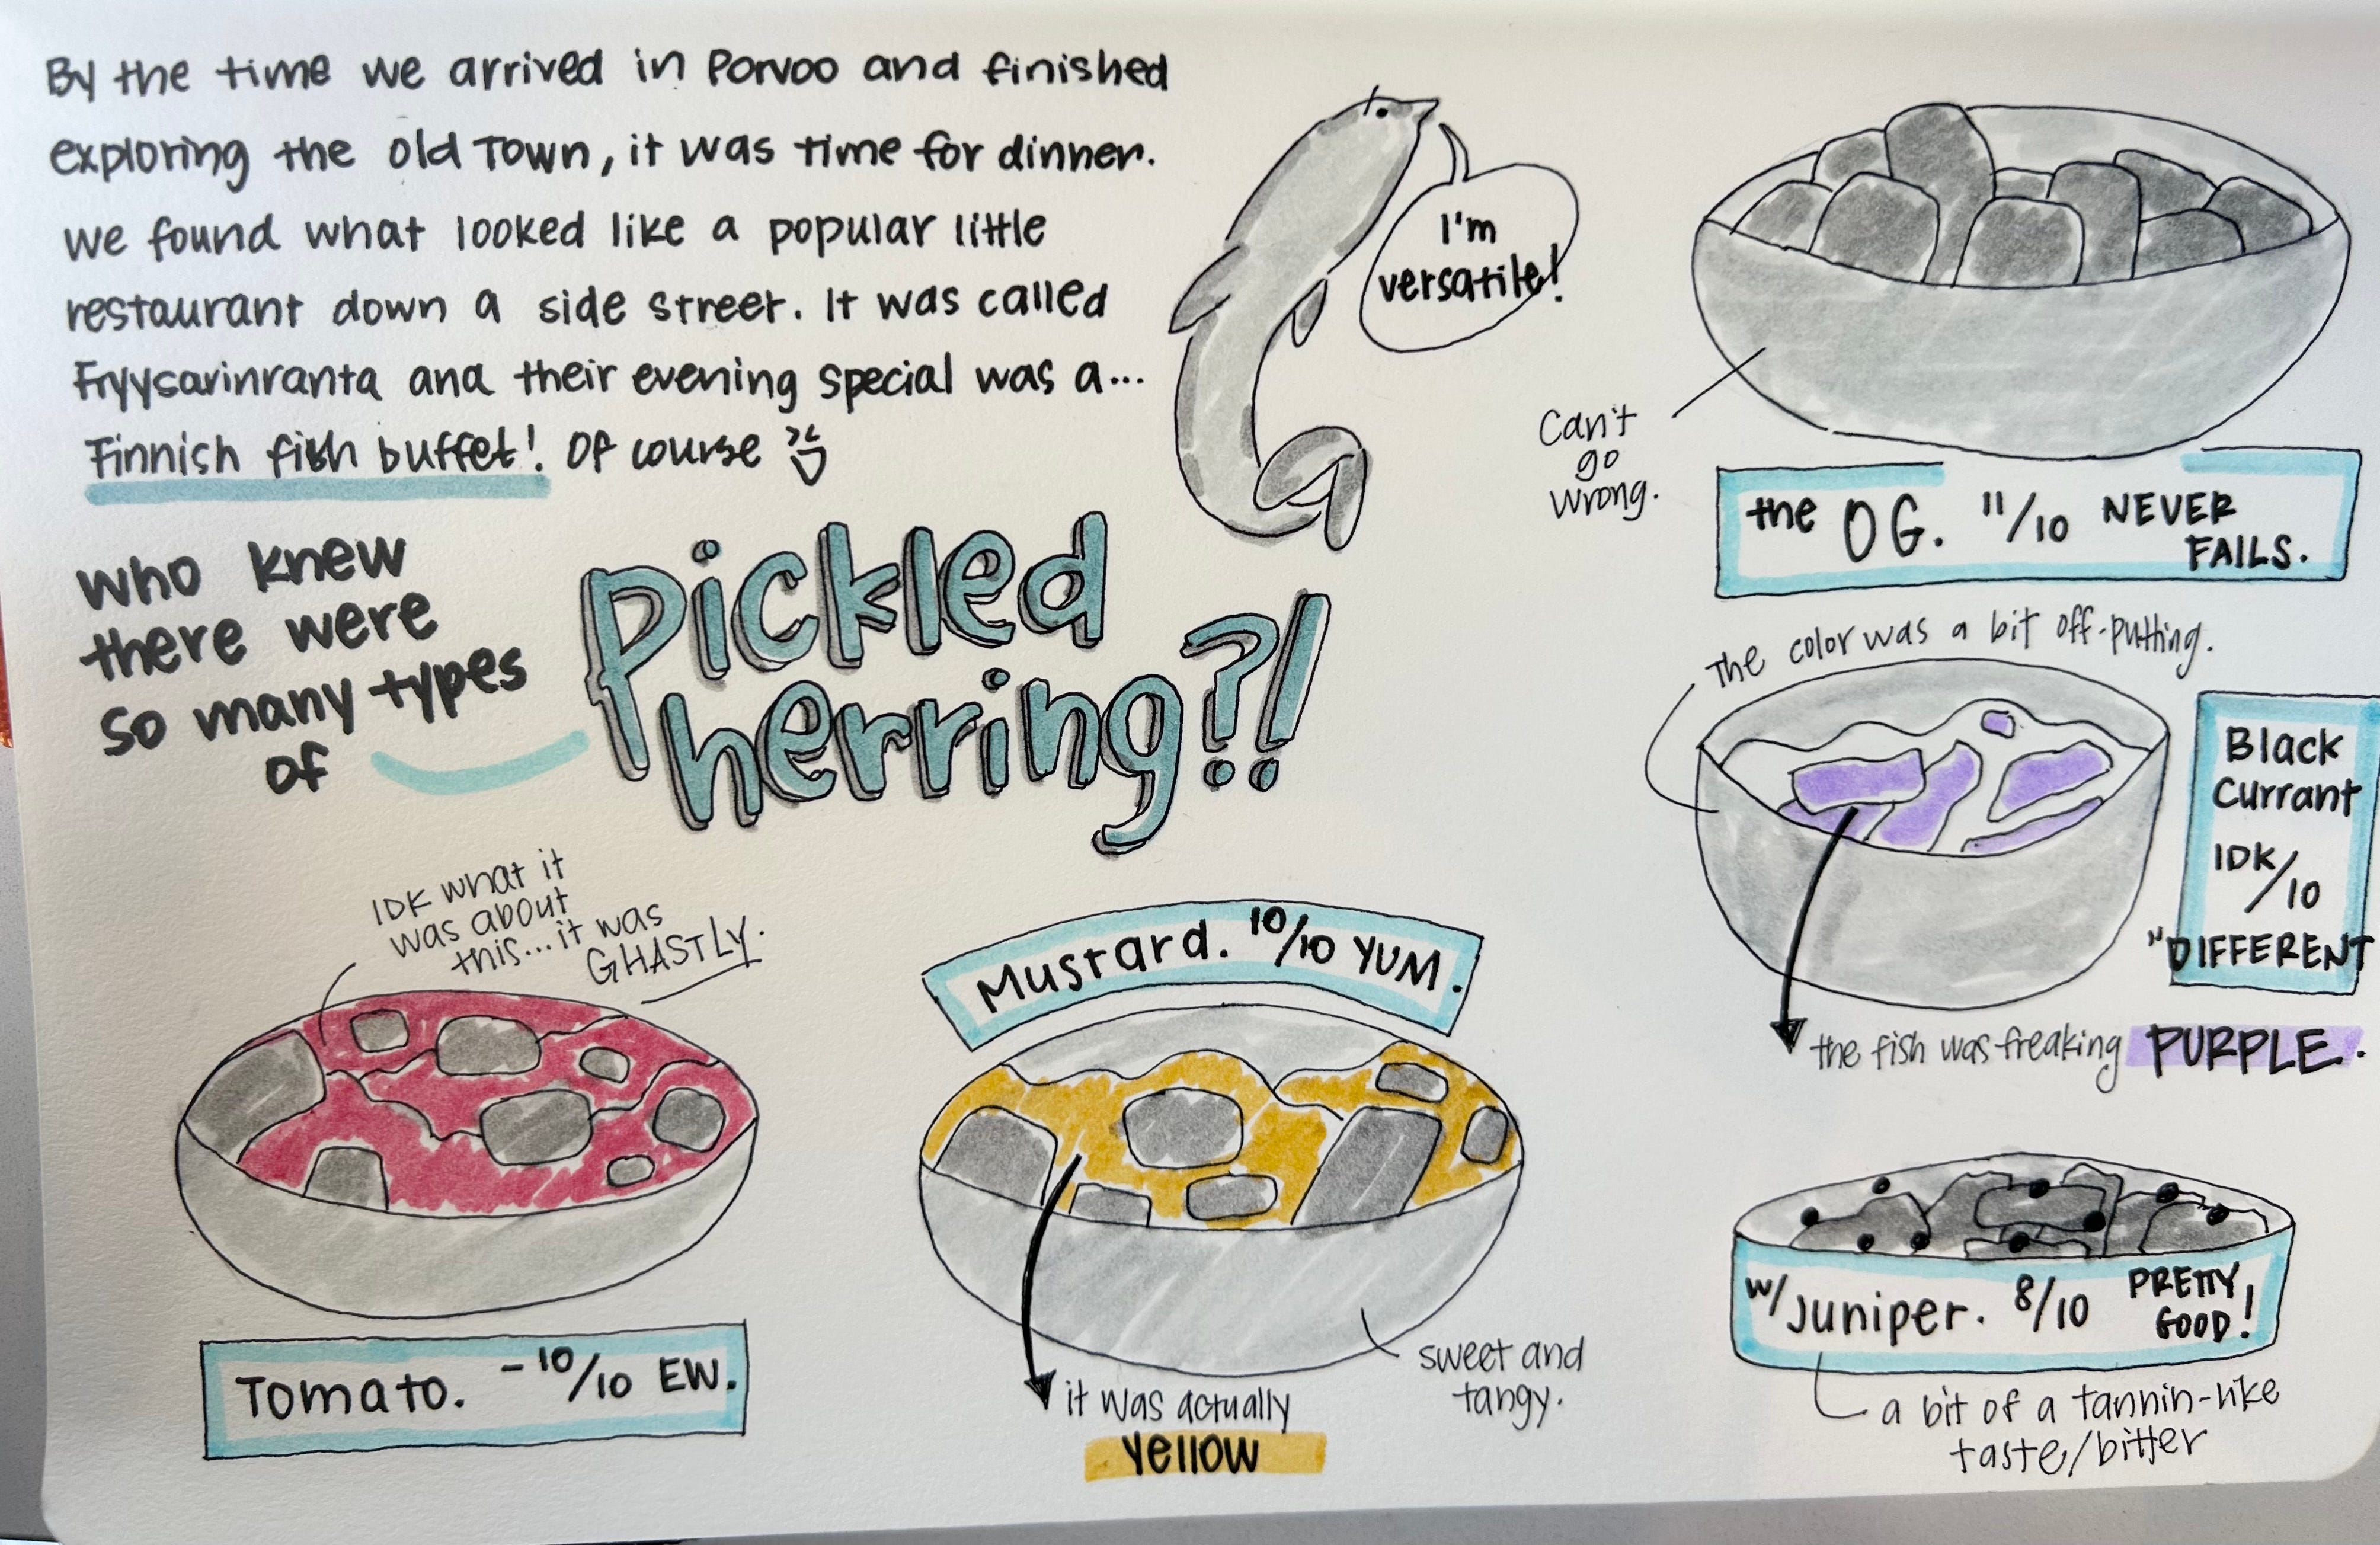 By the time we arrived in Porvoo and finished
exploring the old Town, it was time for dinner.
we found what looked like a popular little
restaurant down a side street. It was called
Fryysarinranta and their evening special was a...
Finnish fish buffet! Of course
who knew
there were
so many types
of
Pickled
herring?!
I'm
versatile!
Can't
go
wrong.
the OG. 11/10 NEVER
FAILS.
The color was a bit off-putting.
Black
Currant
IDK/10
"DIFFERENT
the fish was freaking PURPLE.
IDK what it
was about
this... it was
GHASTLY.
Tomato. -10/10 EW.
Mustard. 10/10 YUM.
it was actually
yellow
sweet and
tangy.
w/ Juniper. 8/10 PRETTY
GOOD!
a bit of a tannin-like
taste/bitter